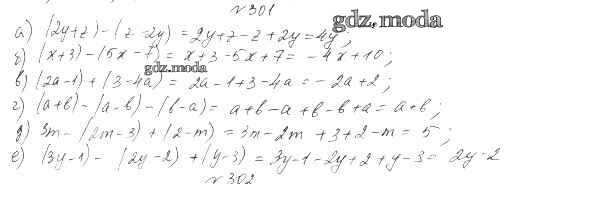 №301
gdz.moda
а) (2y+z)-(z-2y) = 2y+z-z+2y=4y;
б) (x+3)-(5x-7) = x+3-5x+7= -4x+10;
gdz.moda
в) (2a-1)+(3-4a) = 2a-1+3-4a = -2a+2;
г) (a+b)-(a-b)-(b-a)= a+b-a+b-b+a=a+b;
д) 3m-(2m-3)+(2-m)=3m-2m+3+2-m= 5;
е) (3y-1)-(2y-2)+(y-3)=3y-1-2y+2+y-3= 2y-2
№302